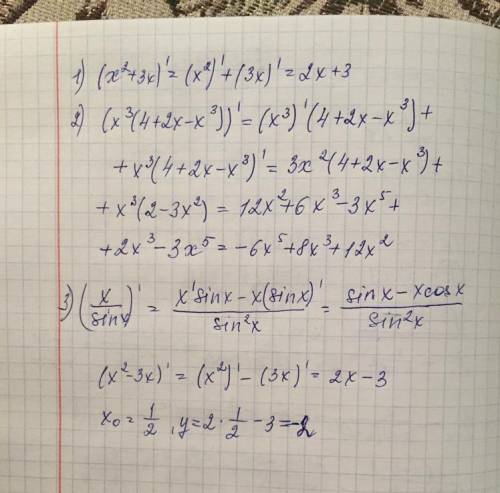 1) (x²+3x)' = (x²)' + (3x)' = 2x+3
2) (x³(4+2x-x³))' = (x³)' (4+2x-x³) +
+ x³(4+2x-x³)' = 3x²(4+2x-x³) +
+ x³(2-3x²) = 12x²+6x³-3x⁵ +
+2x³-3x⁵ = -6x⁵+8x³+12x²
3) (x/sinx)' = (x' sinx - x(sinx)')/sin²x = (sinx - xcosx)/sin²x
(x²-3x)' = (x²)' - (3x)' = 2x-3
x₀ = 1/2, y = 2·1/2 - 3 = -2